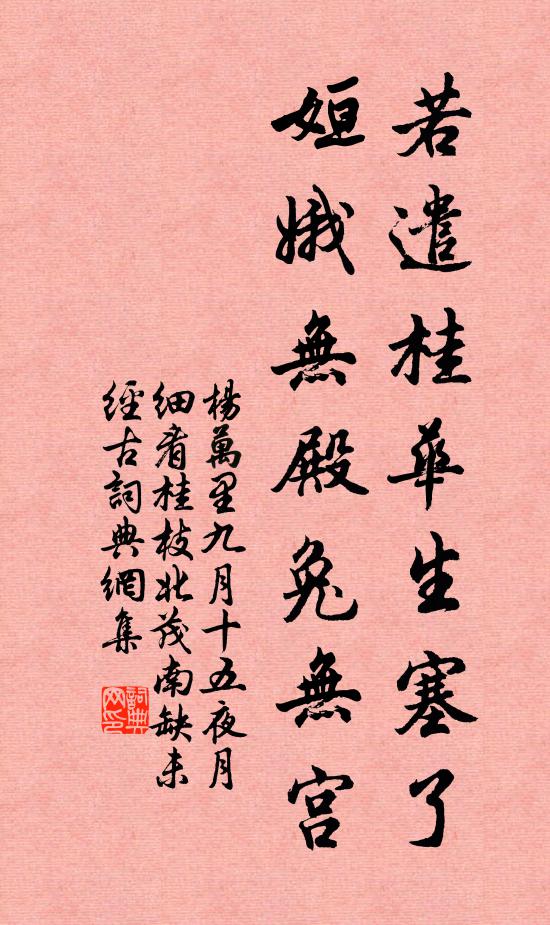 若遣桂華生塞了
姮娥無殿兔無宮
楊萬里九月十五夜月
細看桂枝北茂南缺未
經古詞典網集
詞典網印